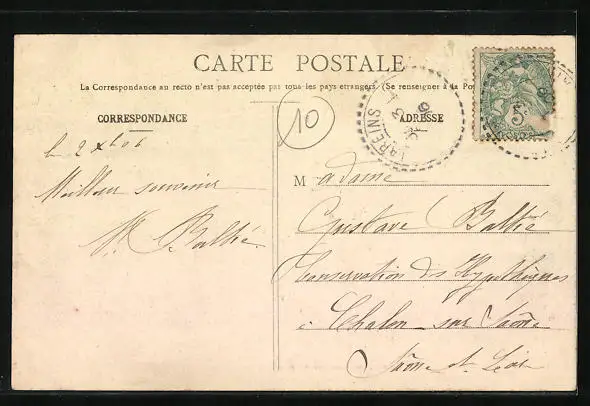 CARTE POSTALE
La Correspondance au recto n'est pas acceptée par tous les pays etrangers. (Se renseigner à la Pos
CORRESPONDANCE
10
ADRESSE
LAREINS
5c
le 2 X 06
Meilleur souvenir
Balhié
Madame
Gustave Balhié
Conservation des Hypothèques
à Chalon-sur-Saône
Saône et Loire